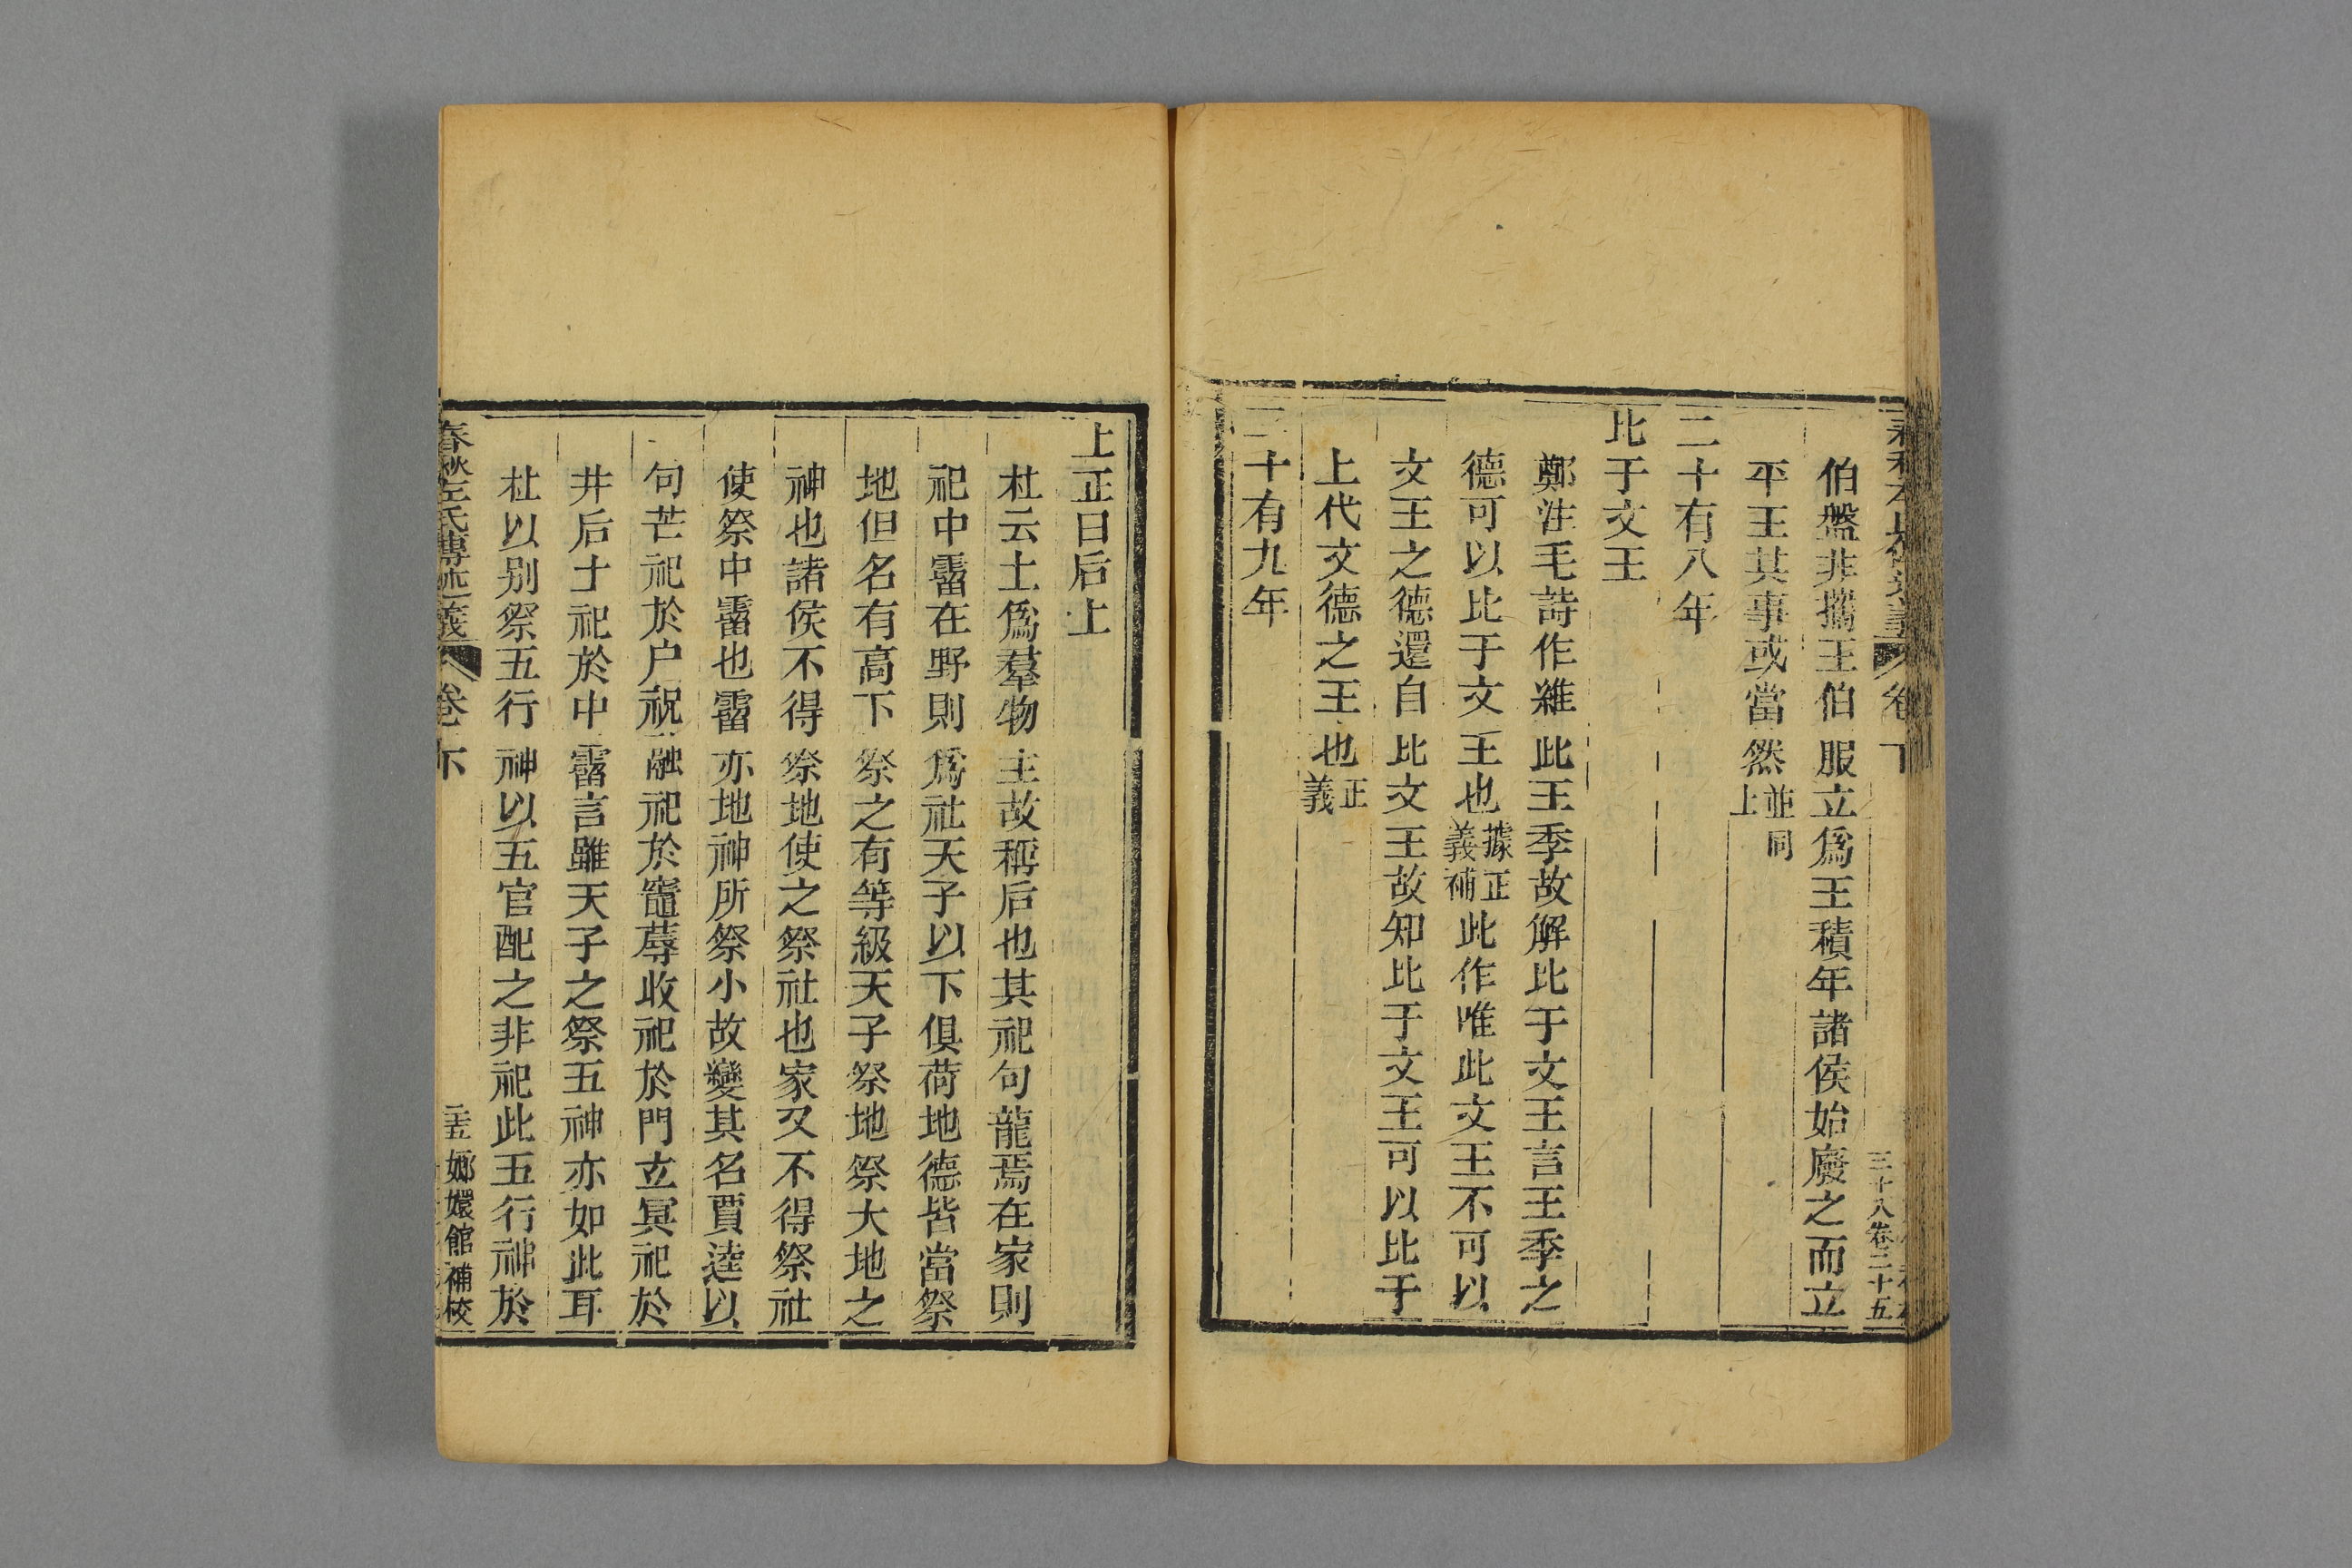 伯盤非攜王伯服立爲王積年諸侯始廢之而立
平王其事或當然並同上
二十有八年
比于文王
鄭注毛詩作維此王季故解比于文王言王季之
德可以比于文王也據正義補此作唯此文王不可以
文王之德還自比文王故知比于文王可以比于
上代文德之王也正義
二十有九年
三十八卷二十五
上正曰后土
杜云土爲羣物主故稱后也其祀句龍焉在家則
祀中霤在野則爲社天子以下俱荷地德皆當祭
地但名有高下祭之有等級天子祭地祭大地之
神也諸侯不得祭地使之祭社也家又不得祭社
使祭中霤也霤亦地神所祭小故變其名賈逵以
句芒祀於户祝融祀於竈蓐收祀於門玄冥祀於
井后土祀於中霤言雖天子之祭五神亦如此耳
杜以别祭五行神以五官配之非祀此五行神於
春秋左氏傳述義 卷下 二十五 嫏嬛館補校